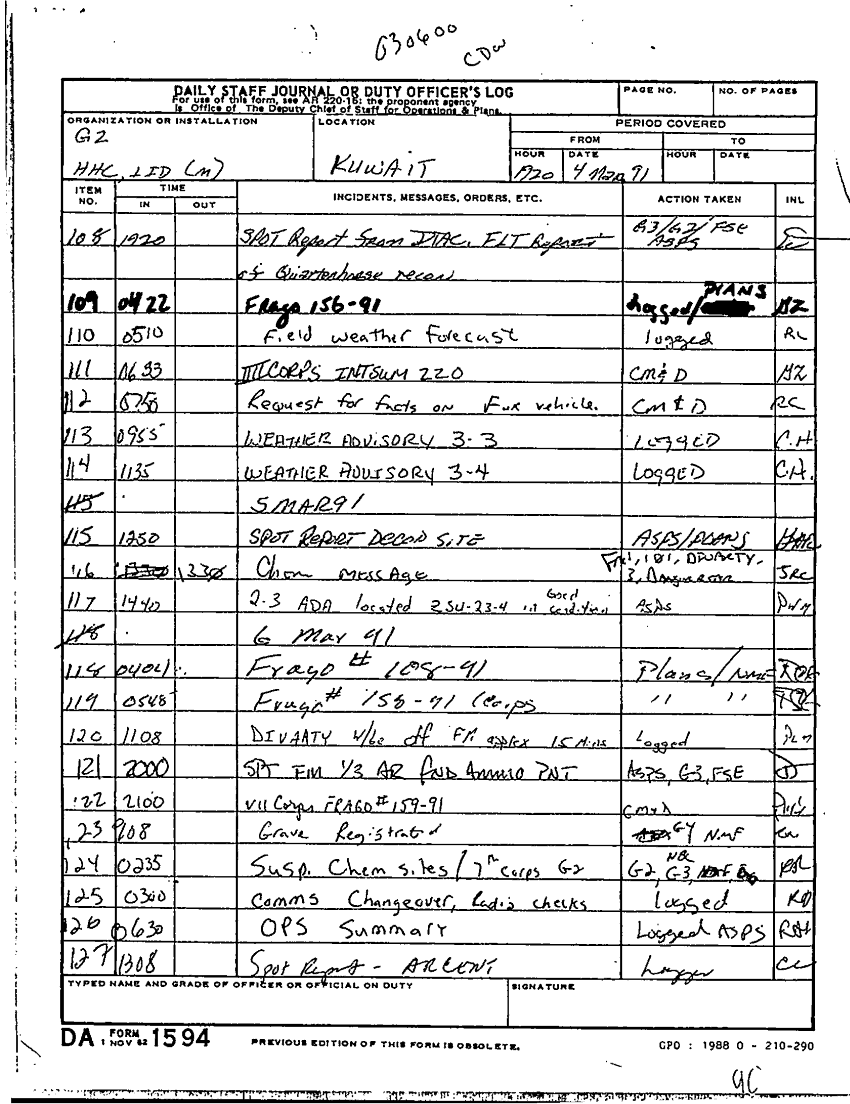 030600
CDW
DAILY STAFF JOURNAL OR DUTY OFFICER'S LOG
For use of this form, see AR 220-15; the proponent agency
is Office of The Deputy Chief of Staff for Operations & Plans.
PAGE NO. NO. OF PAGES
ORGANIZATION OR INSTALLATION LOCATION PERIOD COVERED
G2 FROM TO
HHC, 1ID (M) KUWAIT HOUR DATE HOUR DATE
1920 4 Mar 91
ITEM NO. TIME INCIDENTS, MESSAGES, ORDERS, ETC. ACTION TAKEN INL
IN OUT
108 1920 SPOT Report from DTAC, FLT Report G3/G2/FSE ASPS
of Quarterhorse recon
109 0422 Frago 156-91 Logged/PLANS
110 0510 Field weather forecast logged RL
111 0633 CORPS INTSUM 220 CM&D
112 0750 Request for facts on Fox vehicle. CM&D RC
113 0955 WEATHER ADVISORY 3-3 LOGGED C.H
114 1135 WEATHER ADVISORY 3-4 LOGGED C.H.
115 5 MAR 91
115 1250 SPOT REPORT DECON SITE ASPS/PLANS
116 1330 Chem MESSAge SRC
117 1440 2-3 ADA located ZSU-23-4 in Good condition ASPS
118 6 Mar 91
118 0404 Frago # 108-91 Plans/
119 0548 Frago # 158-91 Corps " "
120 1108 DIVARTY w/be off FM approx 15 mins Logged
121 2000 SPT FM 1/3 AR fND Ammo PNT ASPS, G3, FSE
122 2100 VII Corps FRAGO # 159-91 CM&D
123 908 Grave Registrated
124 0235 Susp. Chem sites / 7th Corps G2 G2, NBC G3,
125 0300 Comms Changeover, Radio checks logged
126 0630 OPS Summary Logged ASPS
127 1308 Spot Report - ARCENT Logged
TYPED NAME AND GRADE OF OFFICER OR OFFICIAL ON DUTY SIGNATURE
DA FORM 1 NOV 62 1594 PREVIOUS EDITION OF THIS FORM IS OBSOLETE. GPO : 1988 0 - 210-290